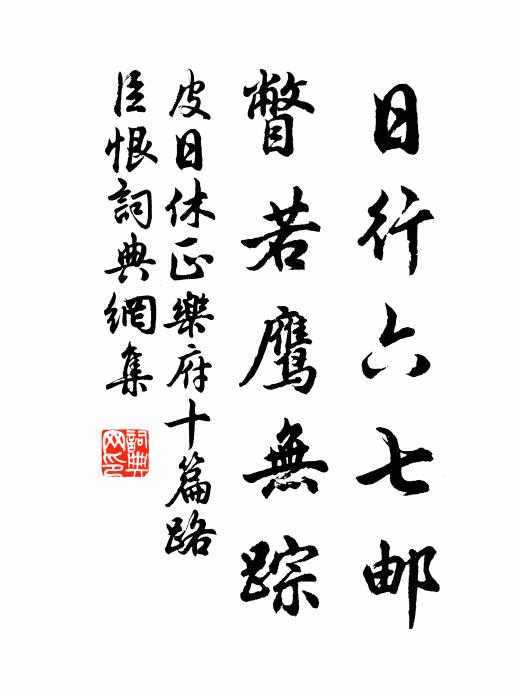 日行六七邮
瞥若鹰無踪
皮日休正樂府十篇路
臣恨詞典網集
詞典网印